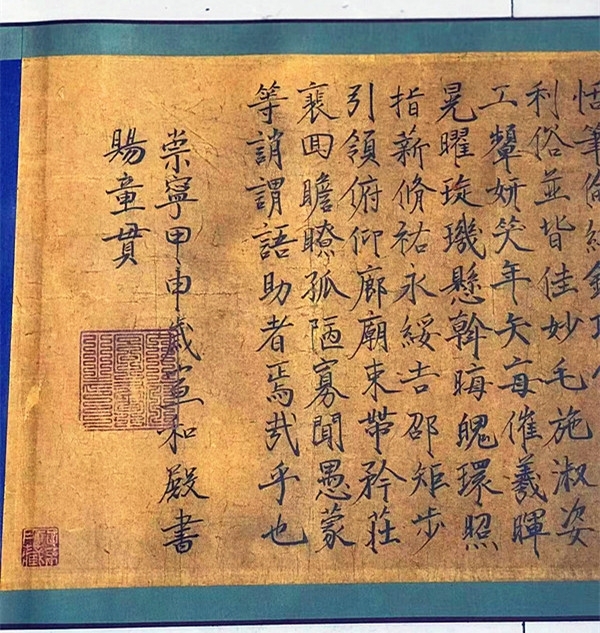 恬筆倫紙鈞巧
利俗並皆佳妙毛施淑姿
工顰妍笑年矢每催羲暉
晃曜琁璣懸斡晦魄環照
指薪脩祐永綏吉邵矩步
引領俯仰廊廟束帶矜莊
裵回瞻瞭孤陋寡聞愚蒙
等誚謂語助者焉哉乎也
崇寧甲申歲宣和殿書
賜童貫